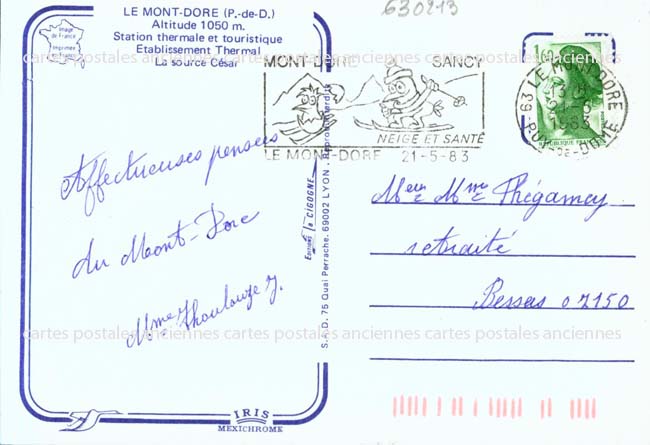 630213
Image
de France
Imprimée
en France
LE MONT-DORE (P.-de-D.)
Altitude 1050 m.
Station thermale et touristique
Etablissement Thermal
La source César
MONT-DORE SANCY
NEIGE ET SANTÉ
LE MONT-DORE 21-5-83
63 LE MONT-DORE
1983
PUY-DE-DOME
Affectueuses pensées
du Mont-Dore
Mme Thoulouze J.
Editions la CIGOGNE
S.P.D. 75 Quai Perrache, 69002 LYON - Reproduction interdite
Mr et Mme Thégamey
retraité
Bessas 07150
cartes postales anciennes cartes postales anciennes cartes postales anciennes
IRIS
MEXICHROME